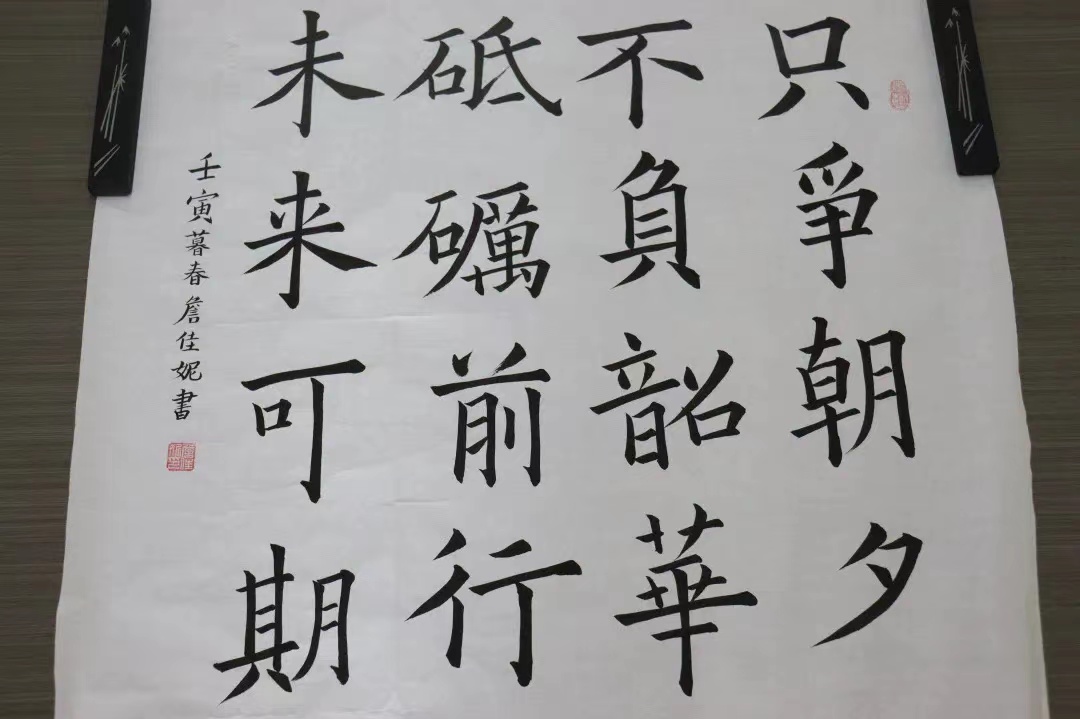 只爭朝夕
不負韶華
砥礪前行
未来可期
壬寅暮春詹佳妮書